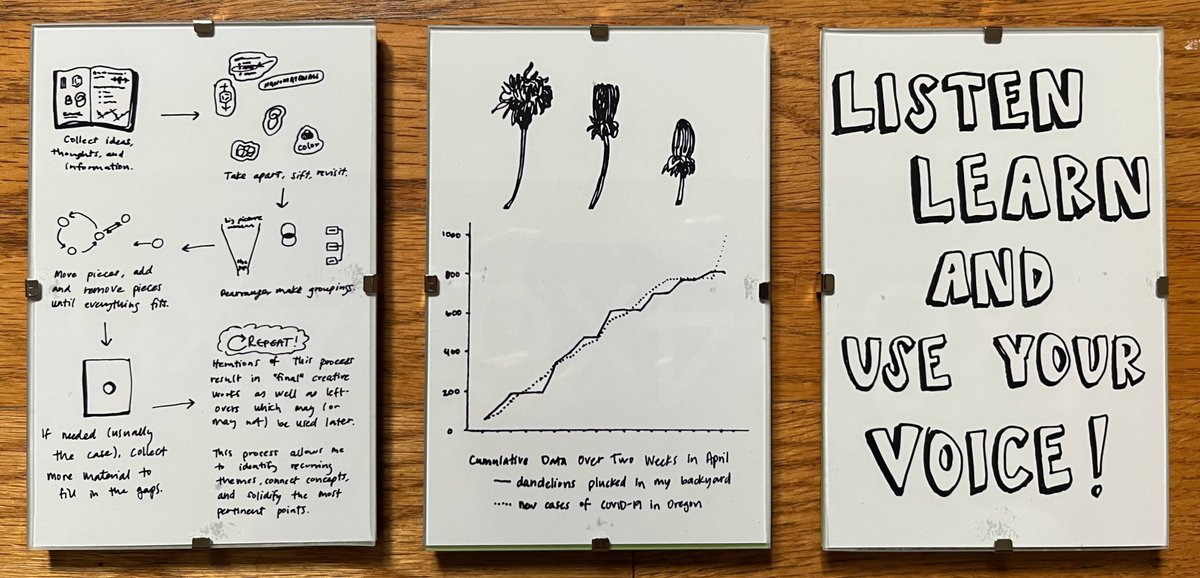 Collect ideas,
thoughts, and
information.
NONMATERIAL
color
Take apart, sift, revisit.
big picture
Rearrange, make groupings.
Move pieces, add
and remove pieces
until everything fits.
If needed (usually
the case), collect
more material to
fill in the gaps.
REPEAT!
Iterations of this process
result in "final" creative
works as well as left-
overs which may (or
may not) be used later.
This process allows me
to identify recurring
themes, connect concepts,
and solidify the most
pertinent points.
1000
800
600
400
200
0
Cumulative Data Over Two Weeks in April
dandelions plucked in my backyard
new cases of COVID-19 in Oregon
LISTEN
LEARN
AND
USE YOUR
VOICE!